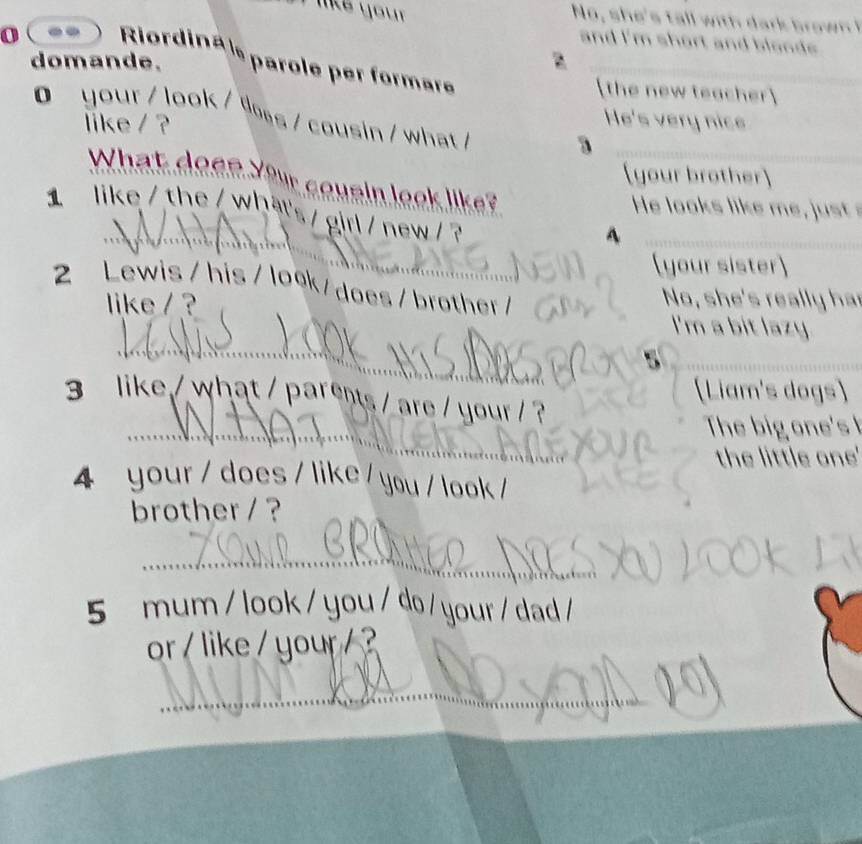 like your
Riordina le parole per formare
domande.
0 your / look / does / cousin / what /
like / ?
What does your cousin look like?
1 like / the / what's / girl / new / ?
WHAT'S THE LIKE NEW
2 Lewis / his / look / does / brother /
like / ?
LEWIS LOOK HIS DOES BROTHER
LIKE ?
3 like / what / parents / are / your / ?
WHAT PARENTS ARE YOUR
LIKE?
4 your / does / like / you / look /
brother / ?
YOUR BROTHER DOES YOU LOOK LI
5 mum / look / you / do / your / dad /
or / like / your / ?
MUM OR DO YOUR
No, she's tall with dark brown h
and I'm short and blonde
2
(the new teacher)
He's very nice
3
(your brother)
He looks like me, just
4
(your sister)
No, she's really har
I'm a bit lazy.
5
(Liam's dogs)
The big one's
the little one'